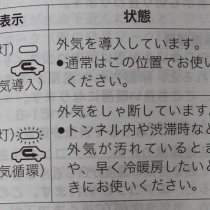 表示 状態
灯) 外気を導入しています。
●通常はこの位置でお使い
気導入) ください。
外気をしゃ断しています。
灯) ●トンネル内や渋滞時など
外気が汚れているとき
や、早く冷暖房したいと
気循環) きにお使いください。